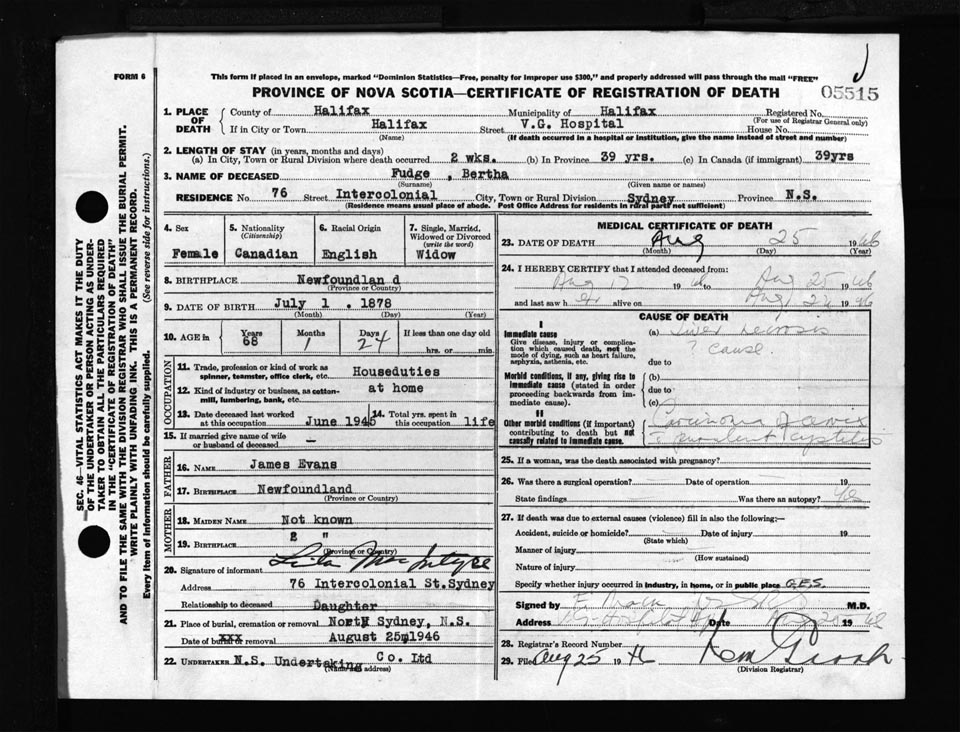 FORM 6
This form if placed in an envelope, marked "Dominion Statistics—Free, penalty for improper use $300," and properly addressed will pass through the mail "FREE"
PROVINCE OF NOVA SCOTIA—CERTIFICATE OF REGISTRATION OF DEATH
05515
SEC. 46—VITAL STATISTICS ACT MAKES IT THE DUTY
OF THE UNDERTAKER OR PERSON ACTING AS UNDER-
TAKER TO OBTAIN ALL THE PARTICULARS REQUIRED
IN THE "CERTIFICATE OF REGISTRATION OF DEATH"
AND TO FILE THE SAME WITH THE DIVISION REGISTRAR WHO SHALL ISSUE THE BURIAL PERMIT.
WRITE PLAINLY WITH UNFADING INK. THIS IS A PERMANENT RECORD.
Every item of information should be carefully supplied. (See reverse side for instructions.)
1. PLACE OF DEATH
County of Halifax Municipality of Halifax Registered No.
(For use of Registrar General only)
If in City or Town Halifax Street V.G. Hospital House No.
(Name) (If death occurred in a hospital or institution, give the name instead of street and number)
2. LENGTH OF STAY (in years, months and days)
(a) In City, Town or Rural Division where death occurred 2 wks. (b) In Province 39 yrs. (c) In Canada (if immigrant) 39yrs
3. NAME OF DECEASED Fudge , Bertha
(Surname) (Given name or names)
RESIDENCE No. 76 Street Intercolonial City, Town or Rural Division Sydney Province N.S.
(Residence means usual place of abode. Post Office Address for residents in rural parts not sufficient)
4. Sex 5. Nationality (Citizenship) 6. Racial Origin 7. Single, Married, Widowed or Divorced (write the word)
Female Canadian English Widow
8. BIRTHPLACE Newfoundlan d
(Province or Country)
9. DATE OF BIRTH July 1 . 1878
(Month) (Day) (Year)
10. AGE in Years Months Days If less than one day old
68 1 24 hrs. or min.
OCCUPATION
11. Trade, profession or kind of work as spinner, teamster, office clerk, etc. Houseduties
12. Kind of industry or business, as cotton-mill, lumbering, bank, etc. at home
13. Date deceased last worked at this occupation June 1945 14. Total yrs. spent in this occupation life
15. If married give name of wife or husband of deceased —
FATHER
16. NAME James Evans
17. BIRTHPLACE Newfoundland
(Province or Country)
MOTHER
18. MAIDEN NAME Not known
19. BIRTHPLACE 2 "
(Province or Country)
20. Signature of informant MacIntyre
Address 76 Intercolonial St.Sydney
Relationship to deceased Daughter
21. Place of burial, cremation or removal North Sydney, N.S.
Date of burial or removal August 25m1946
22. UNDERTAKER N.S. Undertaking Co. Ltd
(Name and address)
MEDICAL CERTIFICATE OF DEATH
23. DATE OF DEATH Aug 25 1946
(Month) (Day) (Year)
24. I HEREBY CERTIFY that I attended deceased from:
Aug 12 1946 to Aug 25 1946
and last saw her alive on Aug 24 1946
CAUSE OF DEATH
I
Immediate cause (a) Liver necrosis
Give disease, injury or complication which caused death, not the mode of dying, such as heart failure, asphyxia, asthenia, etc. ? cause.
due to
Morbid conditions, if any, giving rise to immediate cause (stated in order proceeding backwards from immediate cause). (b)
due to
(c)
II
Other morbid conditions (if important) contributing to death but not causally related to immediate cause. Carcinoma of cervix
purulent cystitis
25. If a woman, was the death associated with pregnancy?
26. Was there a surgical operation? Date of operation 19
State findings Was there an autopsy? Yes
27. If death was due to external causes (violence) fill in also the following:—
Accident, suicide or homicide? Date of injury 19
(State which)
Manner of injury
(How sustained)
Nature of injury
Specify whether injury occurred in industry, in home, or in public place G.E.S.
Signed by M.D.
Address Date 19
28. Registrar's Record Number
29. Filed Aug 25 1946
(Division Registrar)